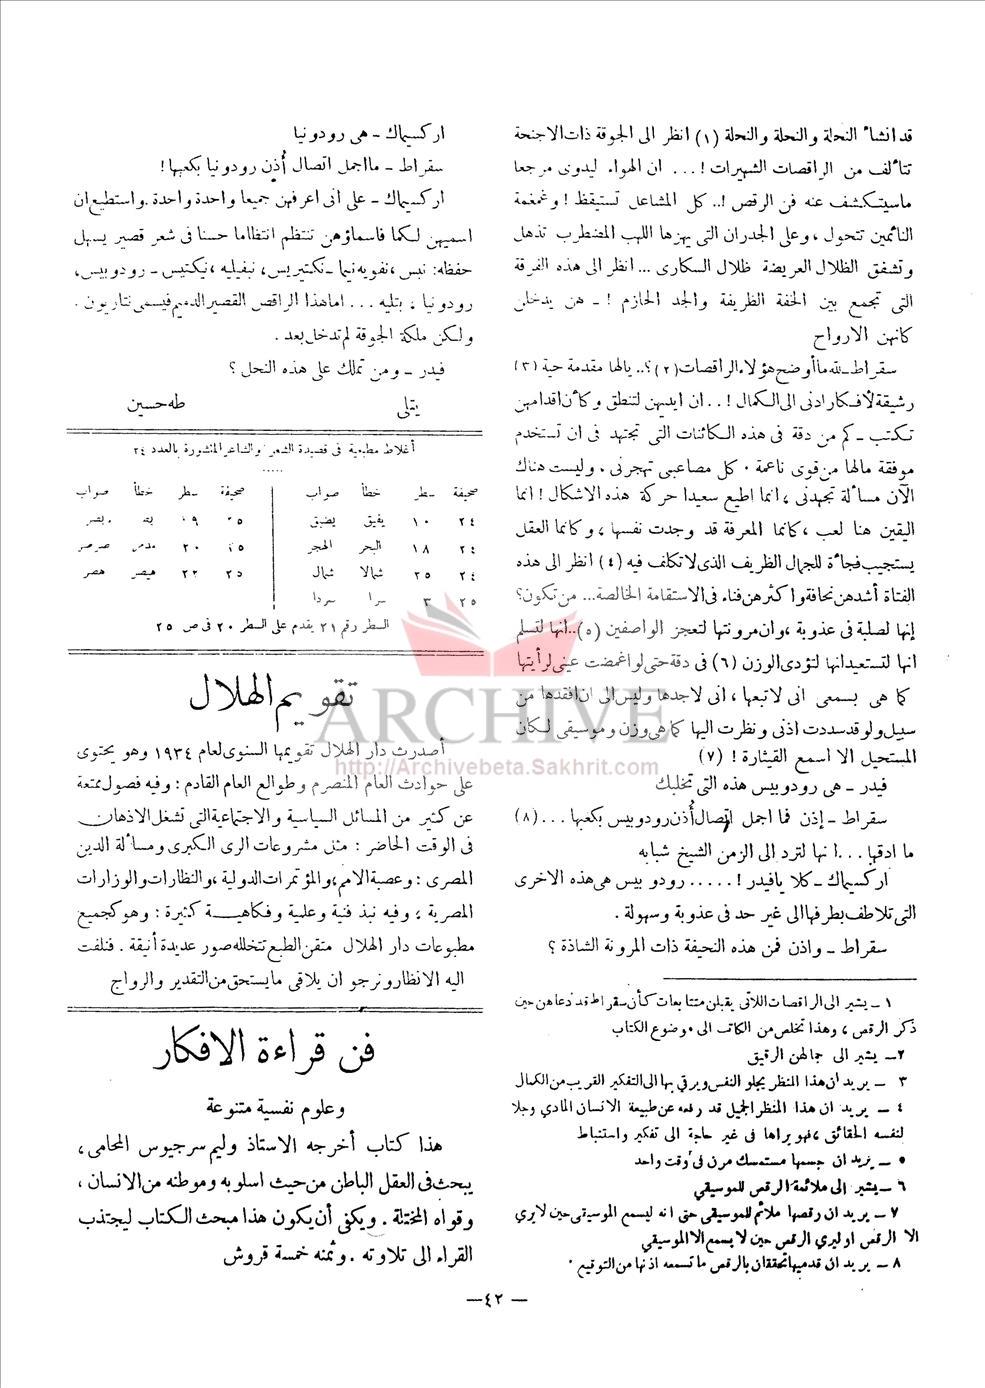 قد انشأ النحلة والنحلة والنحلة (١) انظر الى الجوقة ذات الاجنحة
تتألف من الراقصات الشهيرات !... ان الهواء ليدوى مرجعا
ماسيتكشف عنه فن الرقص !.. كل المشاعل تستيقظ ! وغمغمة
النائمين تتحول ، وعلى الجدران التى يهزها اللهب المضطرب تذهل
وتشفق الظلال العريضة ظلال السكارى ... انظر الى هذه الفرقة
التى تجمع بين الخفة الظريفة والجد الحازم ! ــ هن يدخلن
كانهن الارواح
سقراط ــ لله ما أوضح هؤلاء الراقصات (٢) ؟.. يالها مقدمة حية (٣)
رشيقة لأفكار ادنى الى الكمال !... ان ايديهن لتنطق وكأن اقدامهن
تكتب ــ كم من دقة فى هذه الكائنات التى تجتهد فى ان تستخدم
موفقة مالها من قوى ناعمة . كل مصاعبى تهجرنى ، وليست هناك
الآن مسألة تجهدنى ، انما اطيع سعيدا حركة هذه الاشكال ! انما
اليقين هنا لعب ، كانما المعرفة قد وجدت نفسها ، وكانما العقل
يستجيب فجأة للجمال الظريف الذى لا تكلف فيه (٤) انظر الى هذه
الفتاة أشدهن نحافة واكثرهن فناء فى الاستقامة الخالصة ... من تكون ؟
إنها لصلبة فى عذوبة ، وان مرونتها لتعجز الواصفين (٥) .. انها لتسلم
انها لتستعيد انها لتؤدى الوزن (٦) فى دقة حتى لو اغمضت عينى لرأيتها
كما هى بسمعى انى لاتبعها ، انى لاجدها وليس الى ان افقدها من
سبيل ولو قد سددت اذنى ونظرت اليها كما هى وزن وموسيقى لكان
المستحيل الا اسمع القيثارة ! (٧)
فيدر ــ هى رودوبيس هذه التى تخلبك
سقراط ــ إذن فما اجمل اتصال أُذن رودوبيس بكعبها ... (٨)
ما ادقها ... انها لترد الى الزمن الشيخ شبابه
اركسيماك ــ كلا يا فيدر ! ..... رودوبيس هى هذه الاخرى
التى تلاطف بطرفها الى غير حد فى عذوبة وسهولة .
سقراط ــ واذن فمن هذه النحيفة ذات المرونة الشاذة ؟
١ ــ يشير الى الراقصات اللاتى يقبلن متتابعات كأن سقراط قد دعاهن حين
ذكر الرقص ، وهذا تخلص من الكاتب الى موضوع الكتاب
٢ــ يشير الى جمالهن الرقيق
٣ ــ يريد ان هذا المنظر يجلو النفس ويرقى بها الى التفكير القريب من الكمال
٤ ــ يريد ان هذا المنظر الجميل قد رفعه عن طبيعة الانسان المادي وجلا
لنفسه الحقائق ، فهو يراها فى غير حاجة الى تفكير واستنباط
٥ ــ يريد ان جسمها مستمسك مرن فى وقت واحد
٦ ــ يشير الى ملائمة الرقص للموسيقي
٧ ــ يريد ان رقصها ملائم للموسيقى حتى انه ليسمع الموسيقى حين لايري
الا الرقص او ليري الرقص حين لا يسمع الا الموسيقي
٨ ــ يريد ان قدميها تحققان بالرقص ما تسمعه اذنها من التوقيع .
اركسيماك ــ هى رودونيا
سقراط ــ ما اجمل اتصال أُذن رودونيا بكعبها !
اركسيماك ــ على انى اعرفهن جميعا واحدة واحدة . واستطيع ان
اسميهن لكما فاسماؤهن تنتظم انتظاما حسنا فى شعر قصير يسهل
حفظه : نبس ، نفويه نيما ــ نكتيريس ، نيفيليه ، نيكتيس ــ رودوبيس ،
رودونيا ، بتليه ... اما هذا الراقص القصير الدميم فيسمى نتاريون .
ولكن ملكة الجوقة لم تدخل بعد .
فيدر ــ ومن تملك على هذه النحل ؟
يتلى طه حسين
أغلاط مطبعية فى قصيدة الشعر والشاعر المنشورة بالعدد ٢٤
.....
صحيفة سطر خطأ صواب صحيفة سطر خطأ صواب
٢٤ ١٠ يفيق يضيق ٢٥ ١٩
٢٤ ١٨ البحر الهجر ٢٥ ٢٠ صرصر
٢٤ ٢٥ شمالا شمال ٢٥ ٢٢ هيصر هصر
٢٥ ٣ سرا سردا
السطر رقم ٢١ يقدم على السطر ٢٠ فى ص ٢٥
تقويم الهلال
أصدرت دار الهلال تقويمها السنوى لعام ١٩٣٤ وهو يحتوى
على حوادث العام المنصرم وطوالع العام القادم : وفيه فصول ممتعة
عن كثير من المسائل السياسية والاجتماعية التى تشغل الاذهان
فى الوقت الحاضر : مثل مشروعات الرى الكبرى ومسألة الدين
المصرى : وعصبة الامم ، والمؤتمرات الدولية ، والنظارات والوزارات
المصرية ، وفيه نبذ فنية وعلمية وفكاهية كثيرة : وهو كجميع
مطبوعات دار الهلال متقن الطبع تتخلله صور عديدة أنيقة . فنلفت
اليه الانظار ونرجو ان يلاقى ما يستحق من التقدير والرواج
فن قراءة الافكار
وعلوم نفسية متنوعة
هذا كتاب أخرجه الاستاذ وليم سرجيوس المحامى ،
يبحث فى العقل الباطن من حيث اسلوبه وموطنه من الانسان ،
وقواه المختلة . ويكفى أن يكون هذا مبحث الكتاب ليجتذب
القراء الى تلاوته . وثمنه خمسة قروش
— ٤٢ —
ARCHIVE
http://Archivebeta.Sakhrit.com